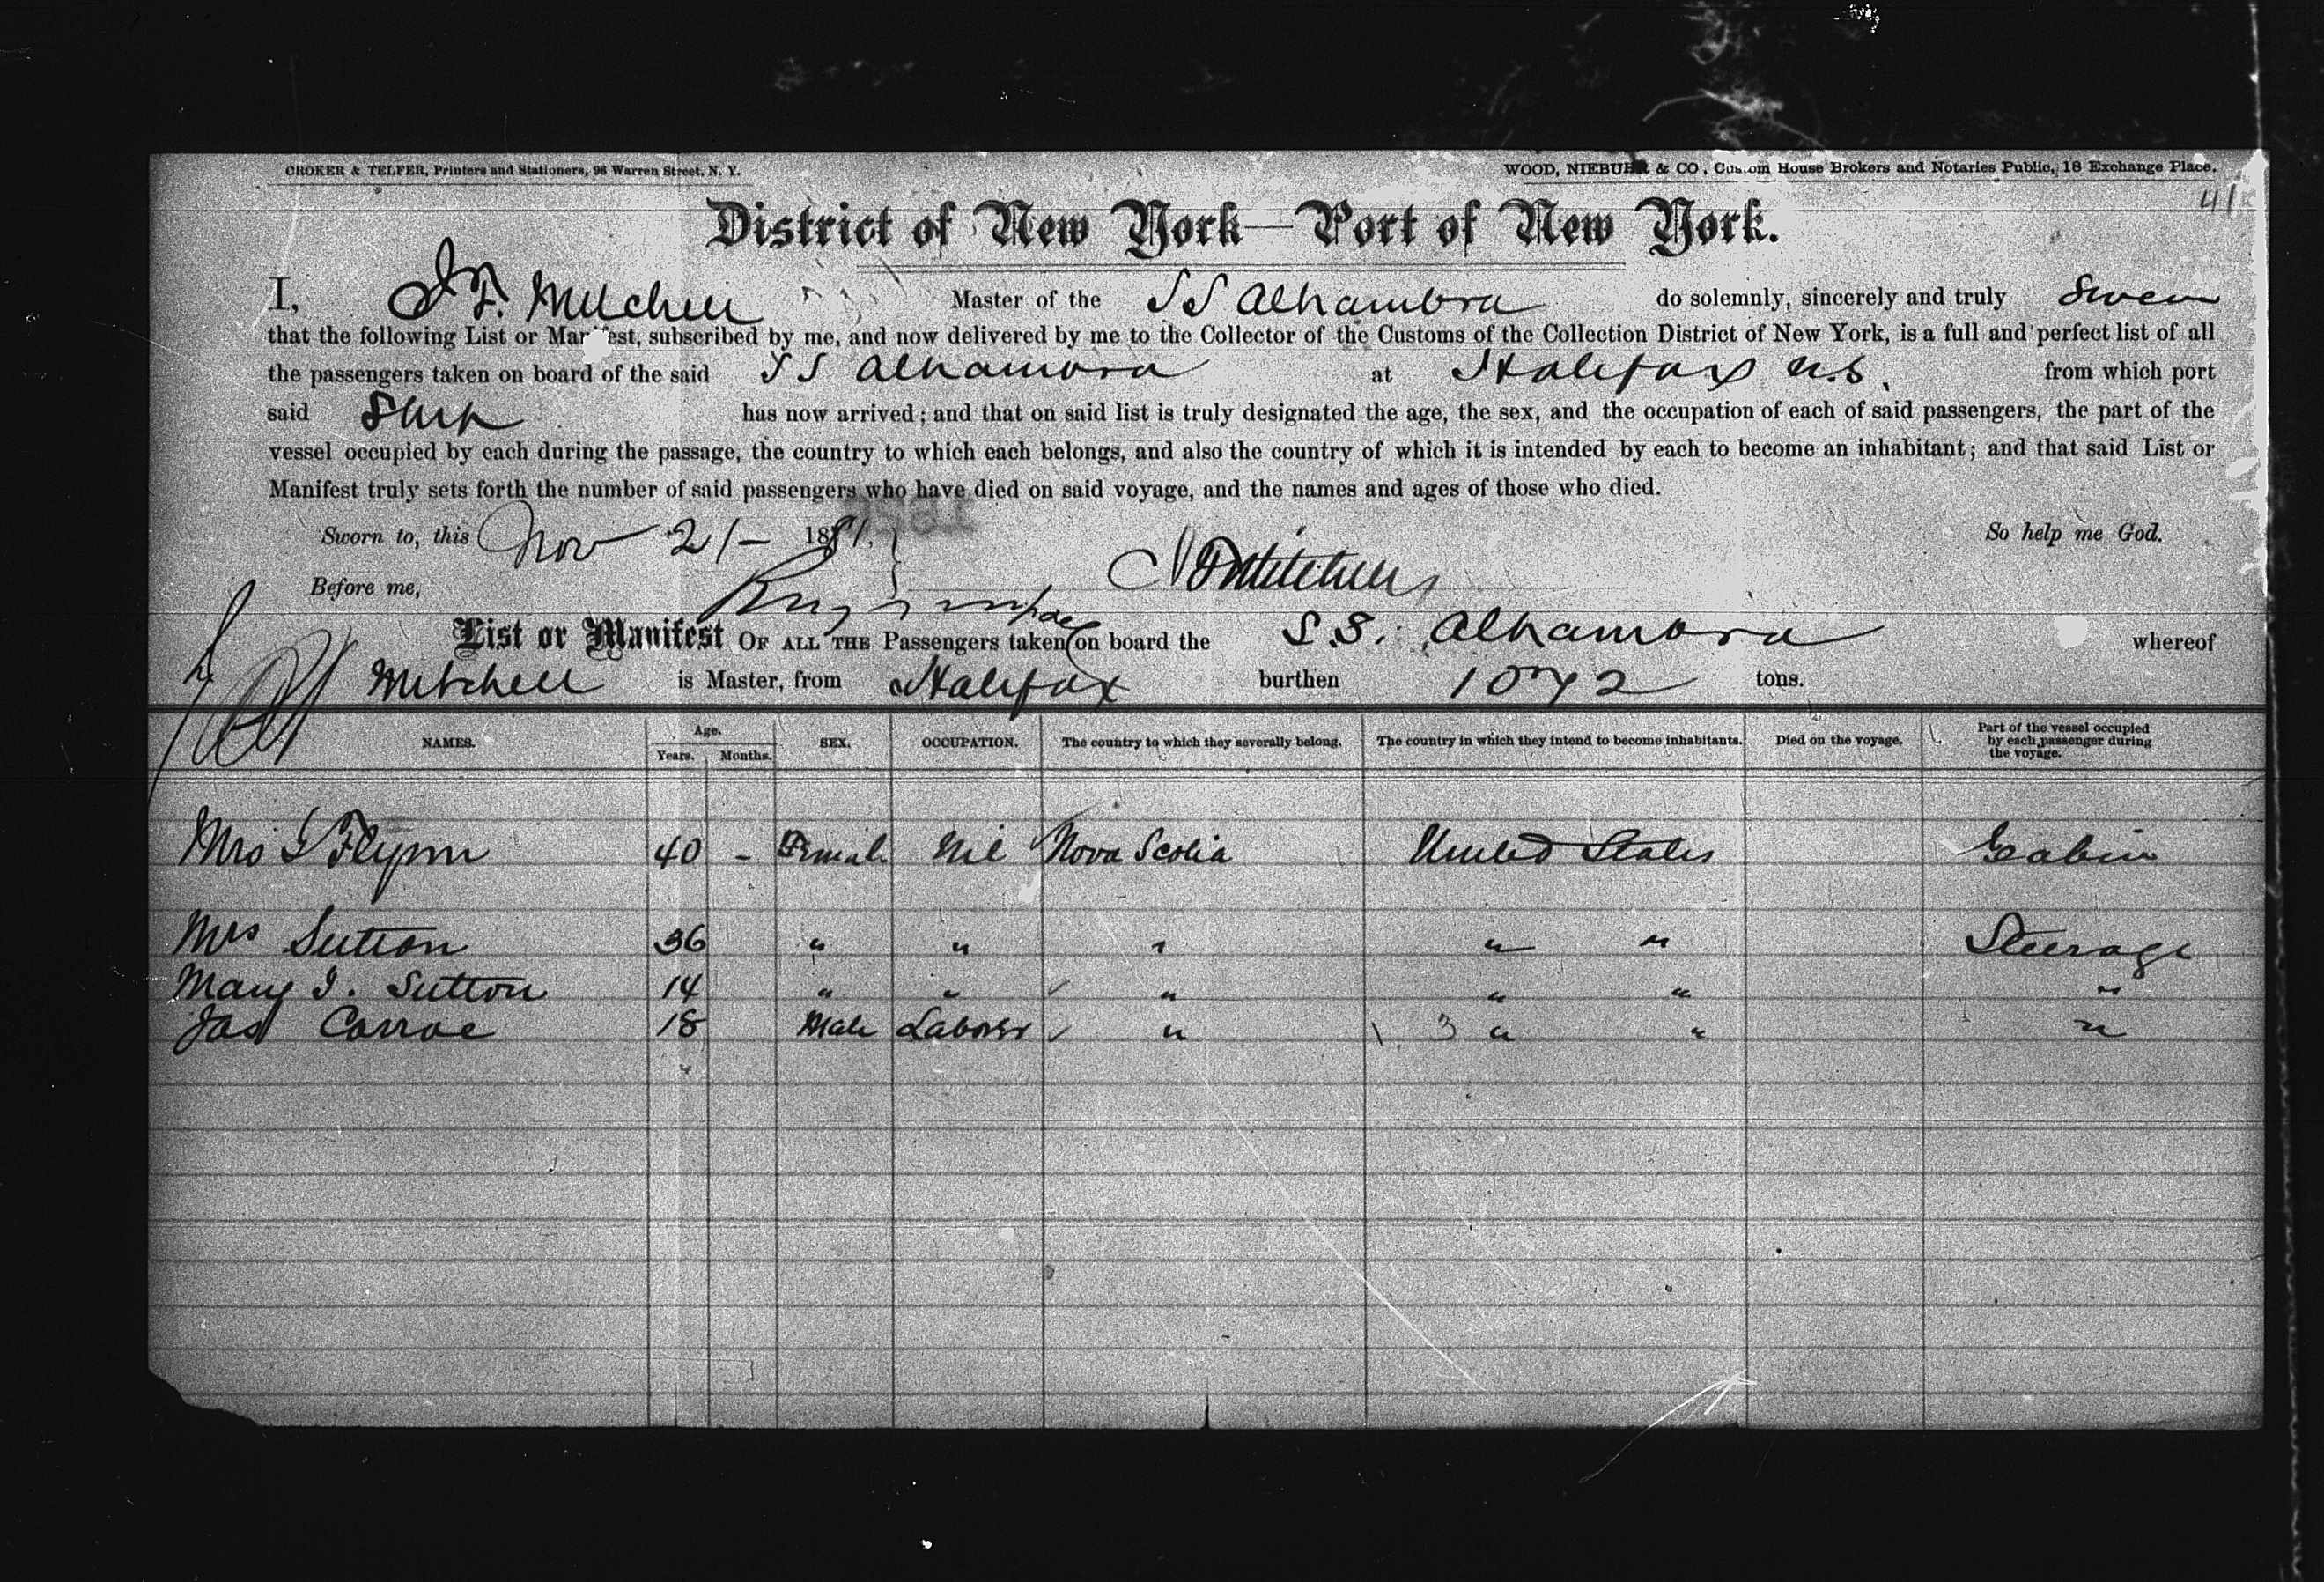 CROKER & TELFER, Printers and Stationers, 96 Warren Street, N. Y. WOOD, NIEBUHR & CO, Custom House Brokers and Notaries Public, 18 Exchange Place.
41
District of New York—Port of New York.
I, J F. Mitchell Master of the SS Alhambra do solemnly, sincerely and truly Swear
that the following List or Manifest, subscribed by me, and now delivered by me to the Collector of the Customs of the Collection District of New York, is a full and perfect list of all
the passengers taken on board of the said SS Alhambra at Halifax N.S. from which port
said Ship has now arrived; and that on said list is truly designated the age, the sex, and the occupation of each of said passengers, the part of the
vessel occupied by each during the passage, the country to which each belongs, and also the country of which it is intended by each to become an inhabitant; and that said List or
Manifest truly sets forth the number of said passengers who have died on said voyage, and the names and ages of those who died.
Sworn to, this Nov 21— 1881. So help me God.
Before me, Mitchell
List or Manifest OF ALL THE Passengers taken on board the S.S. Alhambra whereof
Mitchell is Master, from Halifax burthen 1072 tons.
NAMES. Age. Years. Months. SEX. OCCUPATION. The country to which they severally belong. The country in which they intend to become inhabitants. Died on the voyage. Part of the vessel occupied by each passenger during the voyage.
Mrs Flynn 40 - Female Nil Nova Scotia United States Cabin
Mrs Sutton 36 " " " " " Steerage
Mary J. Sutton 14 " " " " " "
Jas Corroe 18 Male Laborer " 3 " " "